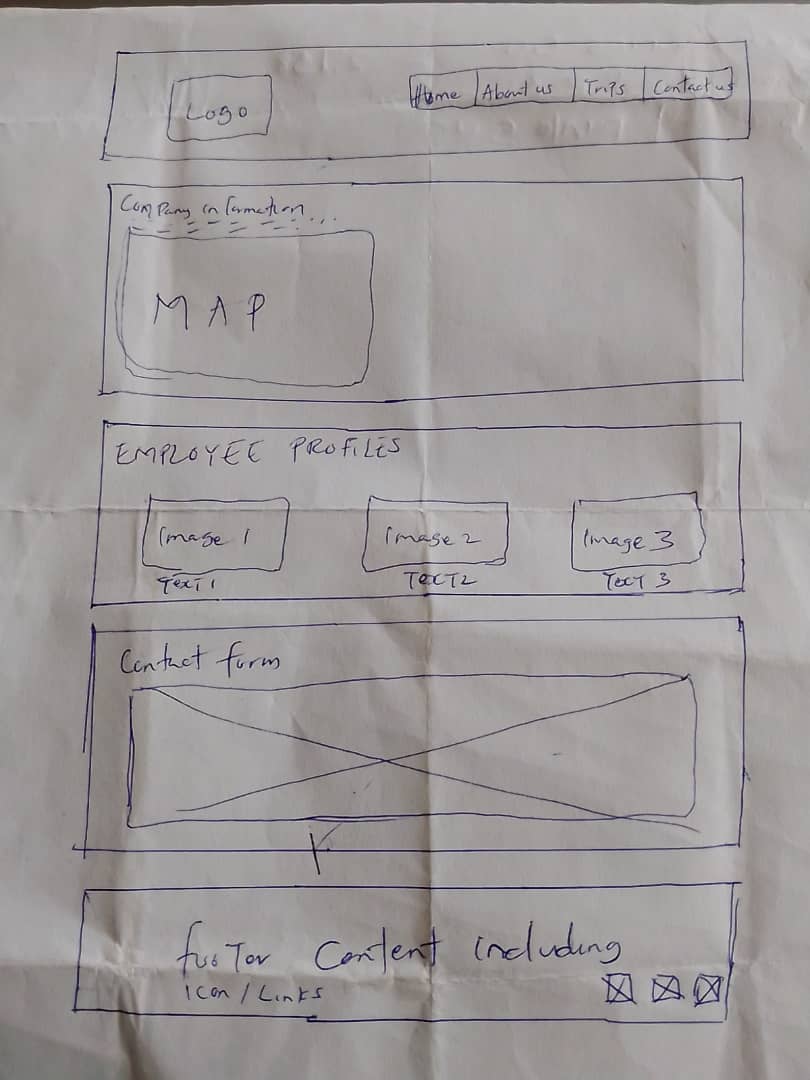 Logo
Home About us Trips Contact us
Company information...
MAP
EMPLOYEE PROFILES
Image 1 Image 2 Image 3
Text 1 Text 2 Text 3
Contact form
footer Content including
Icon / Links